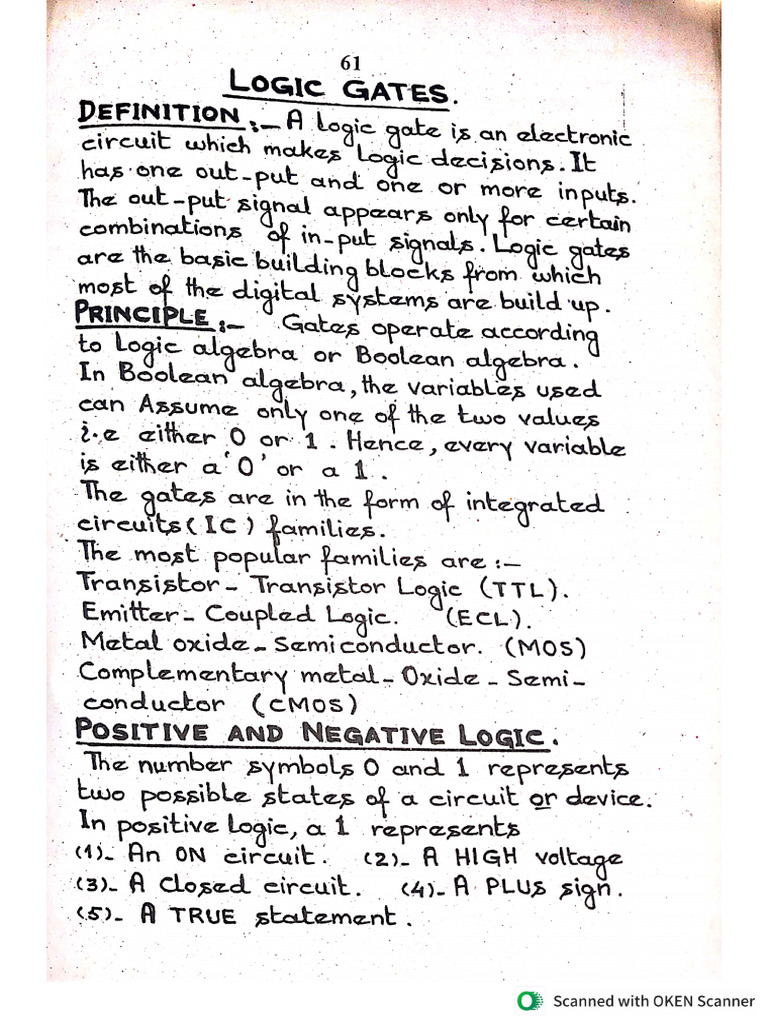 61
LOGIC GATES.
DEFINITION :- A Logic gate is an electronic
circuit which makes Logic decisions. It
has one out-put and one or more inputs.
The out-put signal appears only for certain
combinations of in-put signals. Logic gates
are the basic building blocks from which
most of the digital systems are build up.
PRINCIPLE :- Gates operate according
to Logic algebra or Boolean algebra.
In Boolean algebra, the variables used
can Assume only one of the two values
i.e either 0 or 1. Hence, every variable
is either a '0' or a 1.
The gates are in the form of integrated
circuits (IC) families.
The most popular families are :-
Transistor - Transistor Logic (TTL).
Emitter - Coupled Logic. (ECL).
Metal oxide - Semiconductor. (MOS)
Complementary metal - Oxide - Semi-
conductor (CMOS)
POSITIVE AND NEGATIVE LOGIC.
The number symbols 0 and 1 represents
two possible states of a circuit or device.
In positive Logic, a 1 represents
(1)- An ON circuit. (2)- A HIGH voltage
(3)- A Closed circuit. (4)- A PLUS sign.
(5)- A TRUE statement.
Scanned with OKEN Scanner